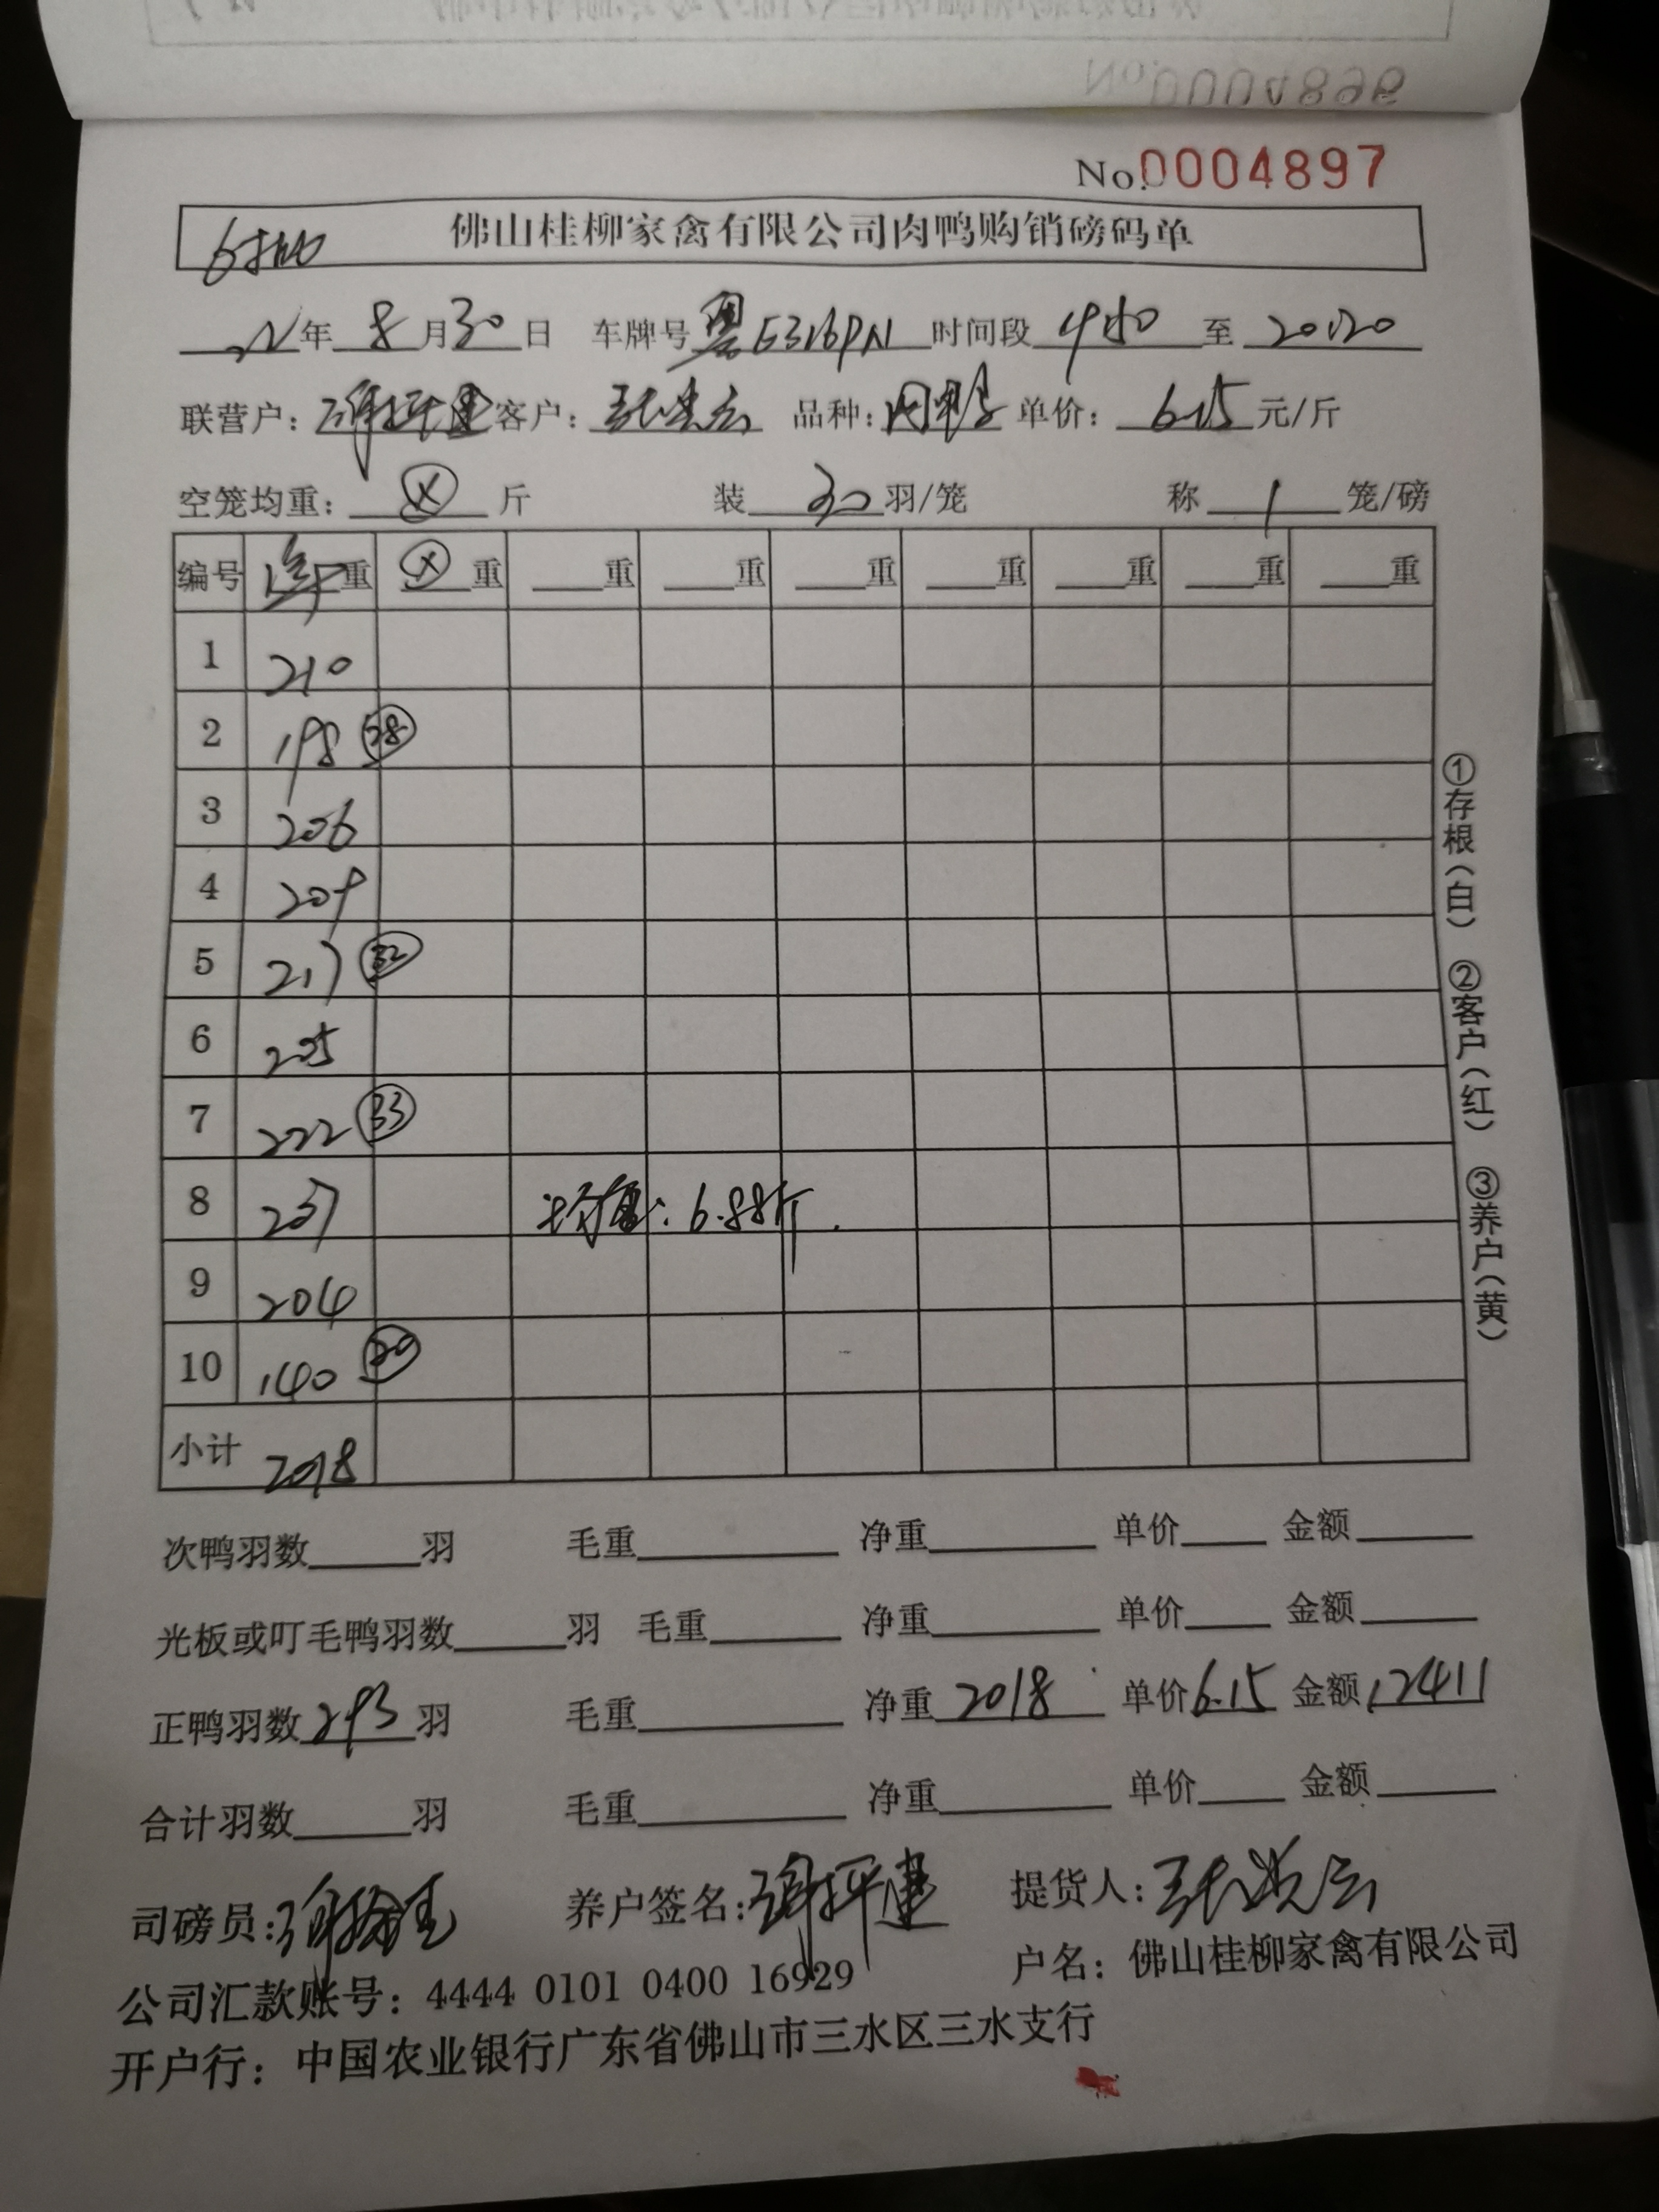 No.0004898
No.0004897
佛山桂柳家禽有限公司肉鸭购销磅码单
年 8 月 30 日 车牌号 粤E316PN 时间段 至 20:20
联营户： 客户： 品种：肉鸭 单价：6.15 元/斤
空笼均重： ⊗ 斤 装 30 羽/笼 称 1 笼/磅
编号 净重 ⊗重 重 重 重 重 重 重 重
1 210
2 198 28
3 206
4 209
5 217 32
6 205
7 222 33
8 207 均重：6.88斤.
9 204
10 140 20
小计 2018
①存根（白） ②客户（红） ③养户（黄）
次鸭羽数 羽 毛重 净重 单价 金额
光板或叮毛鸭羽数 羽 毛重 净重 单价 金额
正鸭羽数 293 羽 毛重 净重 2018 单价 6.15 金额 12411
合计羽数 羽 毛重 净重 单价 金额
司磅员： 养户签名： 提货人：
公司汇款账号：4444 0101 0400 16929 户名：佛山桂柳家禽有限公司
开户行：中国农业银行广东省佛山市三水区三水支行